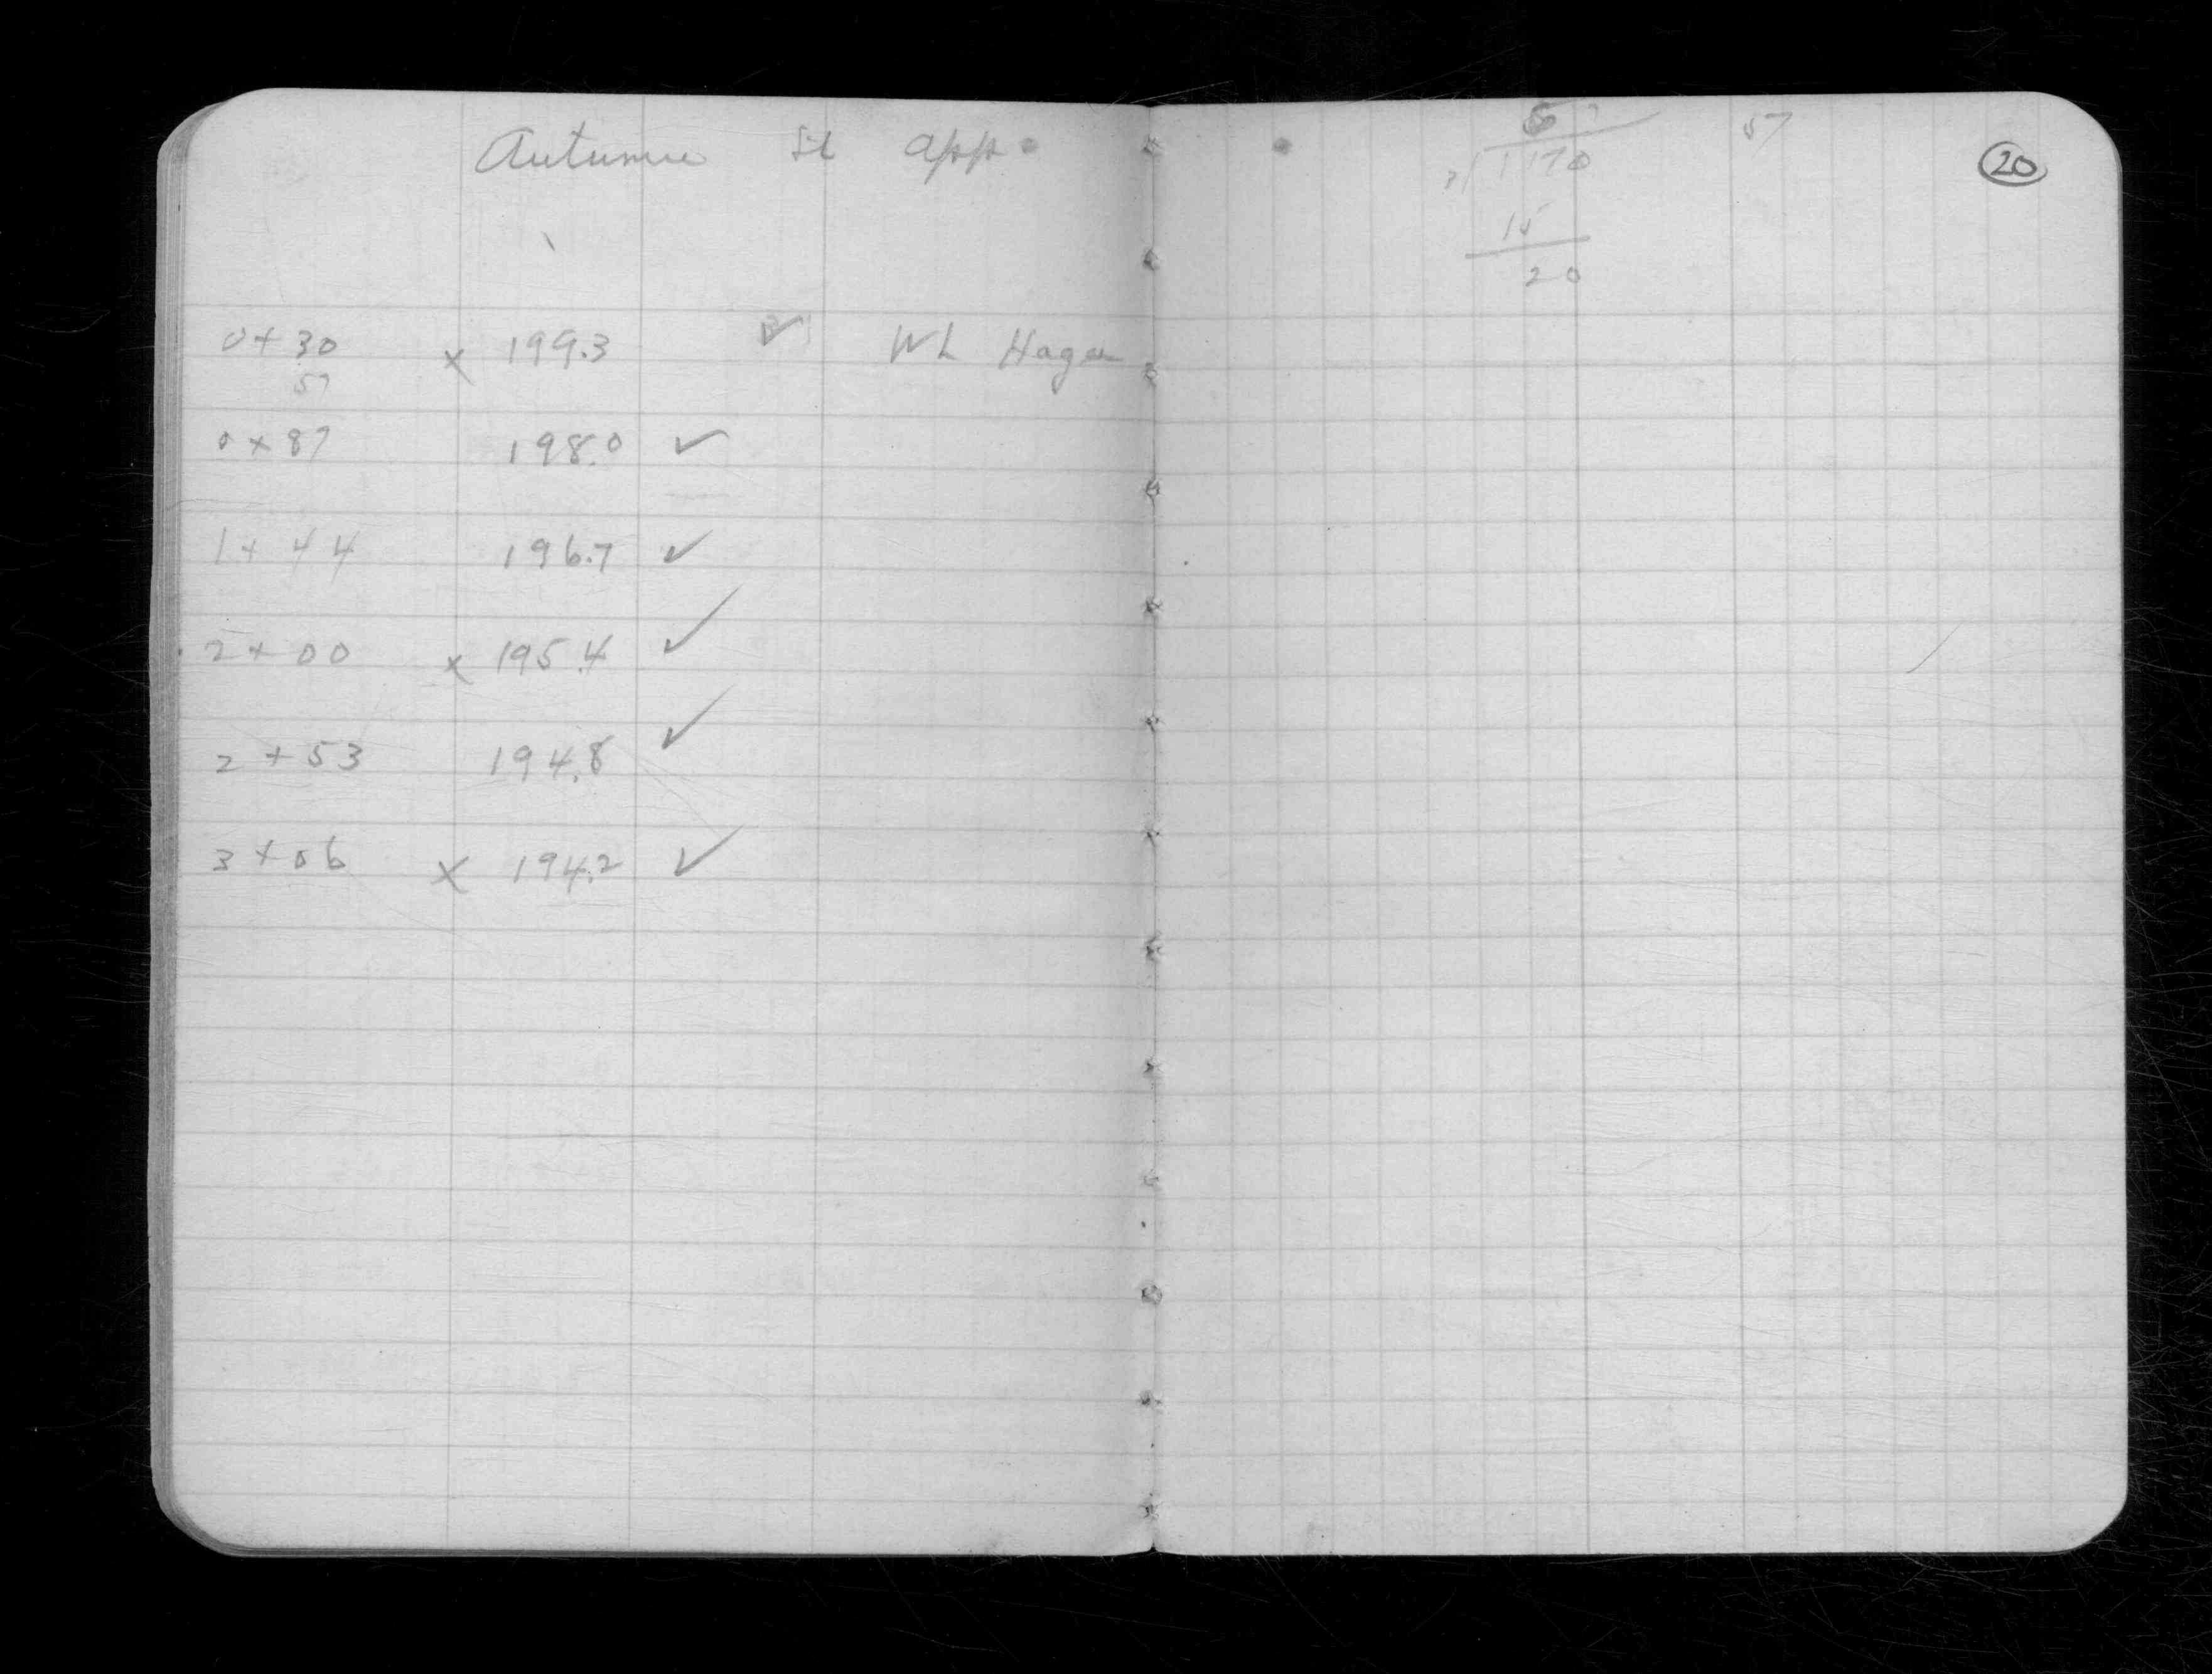 Autumn St app.
0+30 x 199.3 ✓ WL Hagan
57
0+87 198.0 ✓
1+44 196.7 ✓
2+00 x 195.4 ✓
2+53 194.8 ✓
3+06 x 194.2 ✓
57
1170
15
20
20